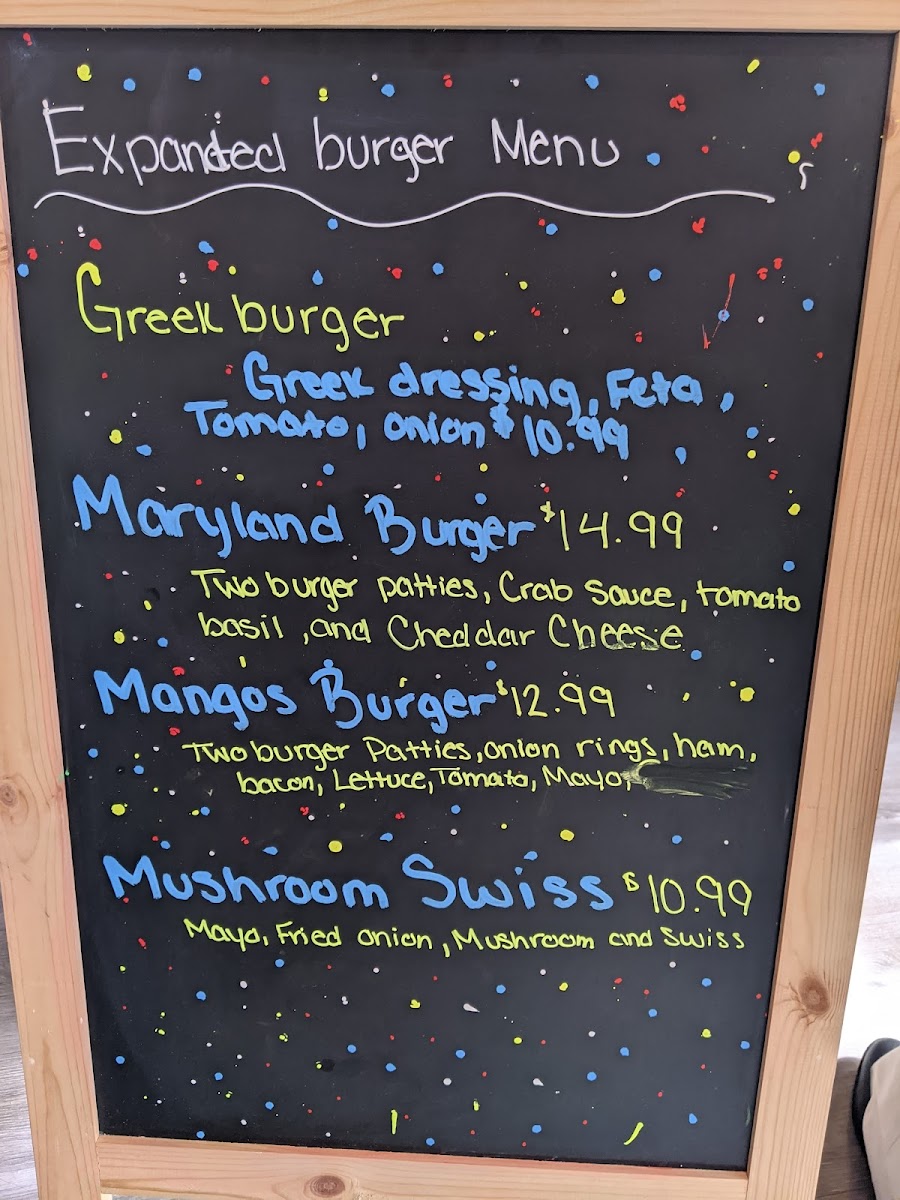 Expanded burger Menu
Greek burger
Greek dressing, Feta,
Tomato, onion $10.99
Maryland Burger $14.99
Two burger patties, Crab Sauce, tomato
basil, and Cheddar Cheese
Mangos Burger $12.99
Two burger Patties, onion rings, ham,
bacon, Lettuce, Tomato, Mayo,
Mushroom Swiss $10.99
Mayo, Fried onion, Mushroom and Swiss